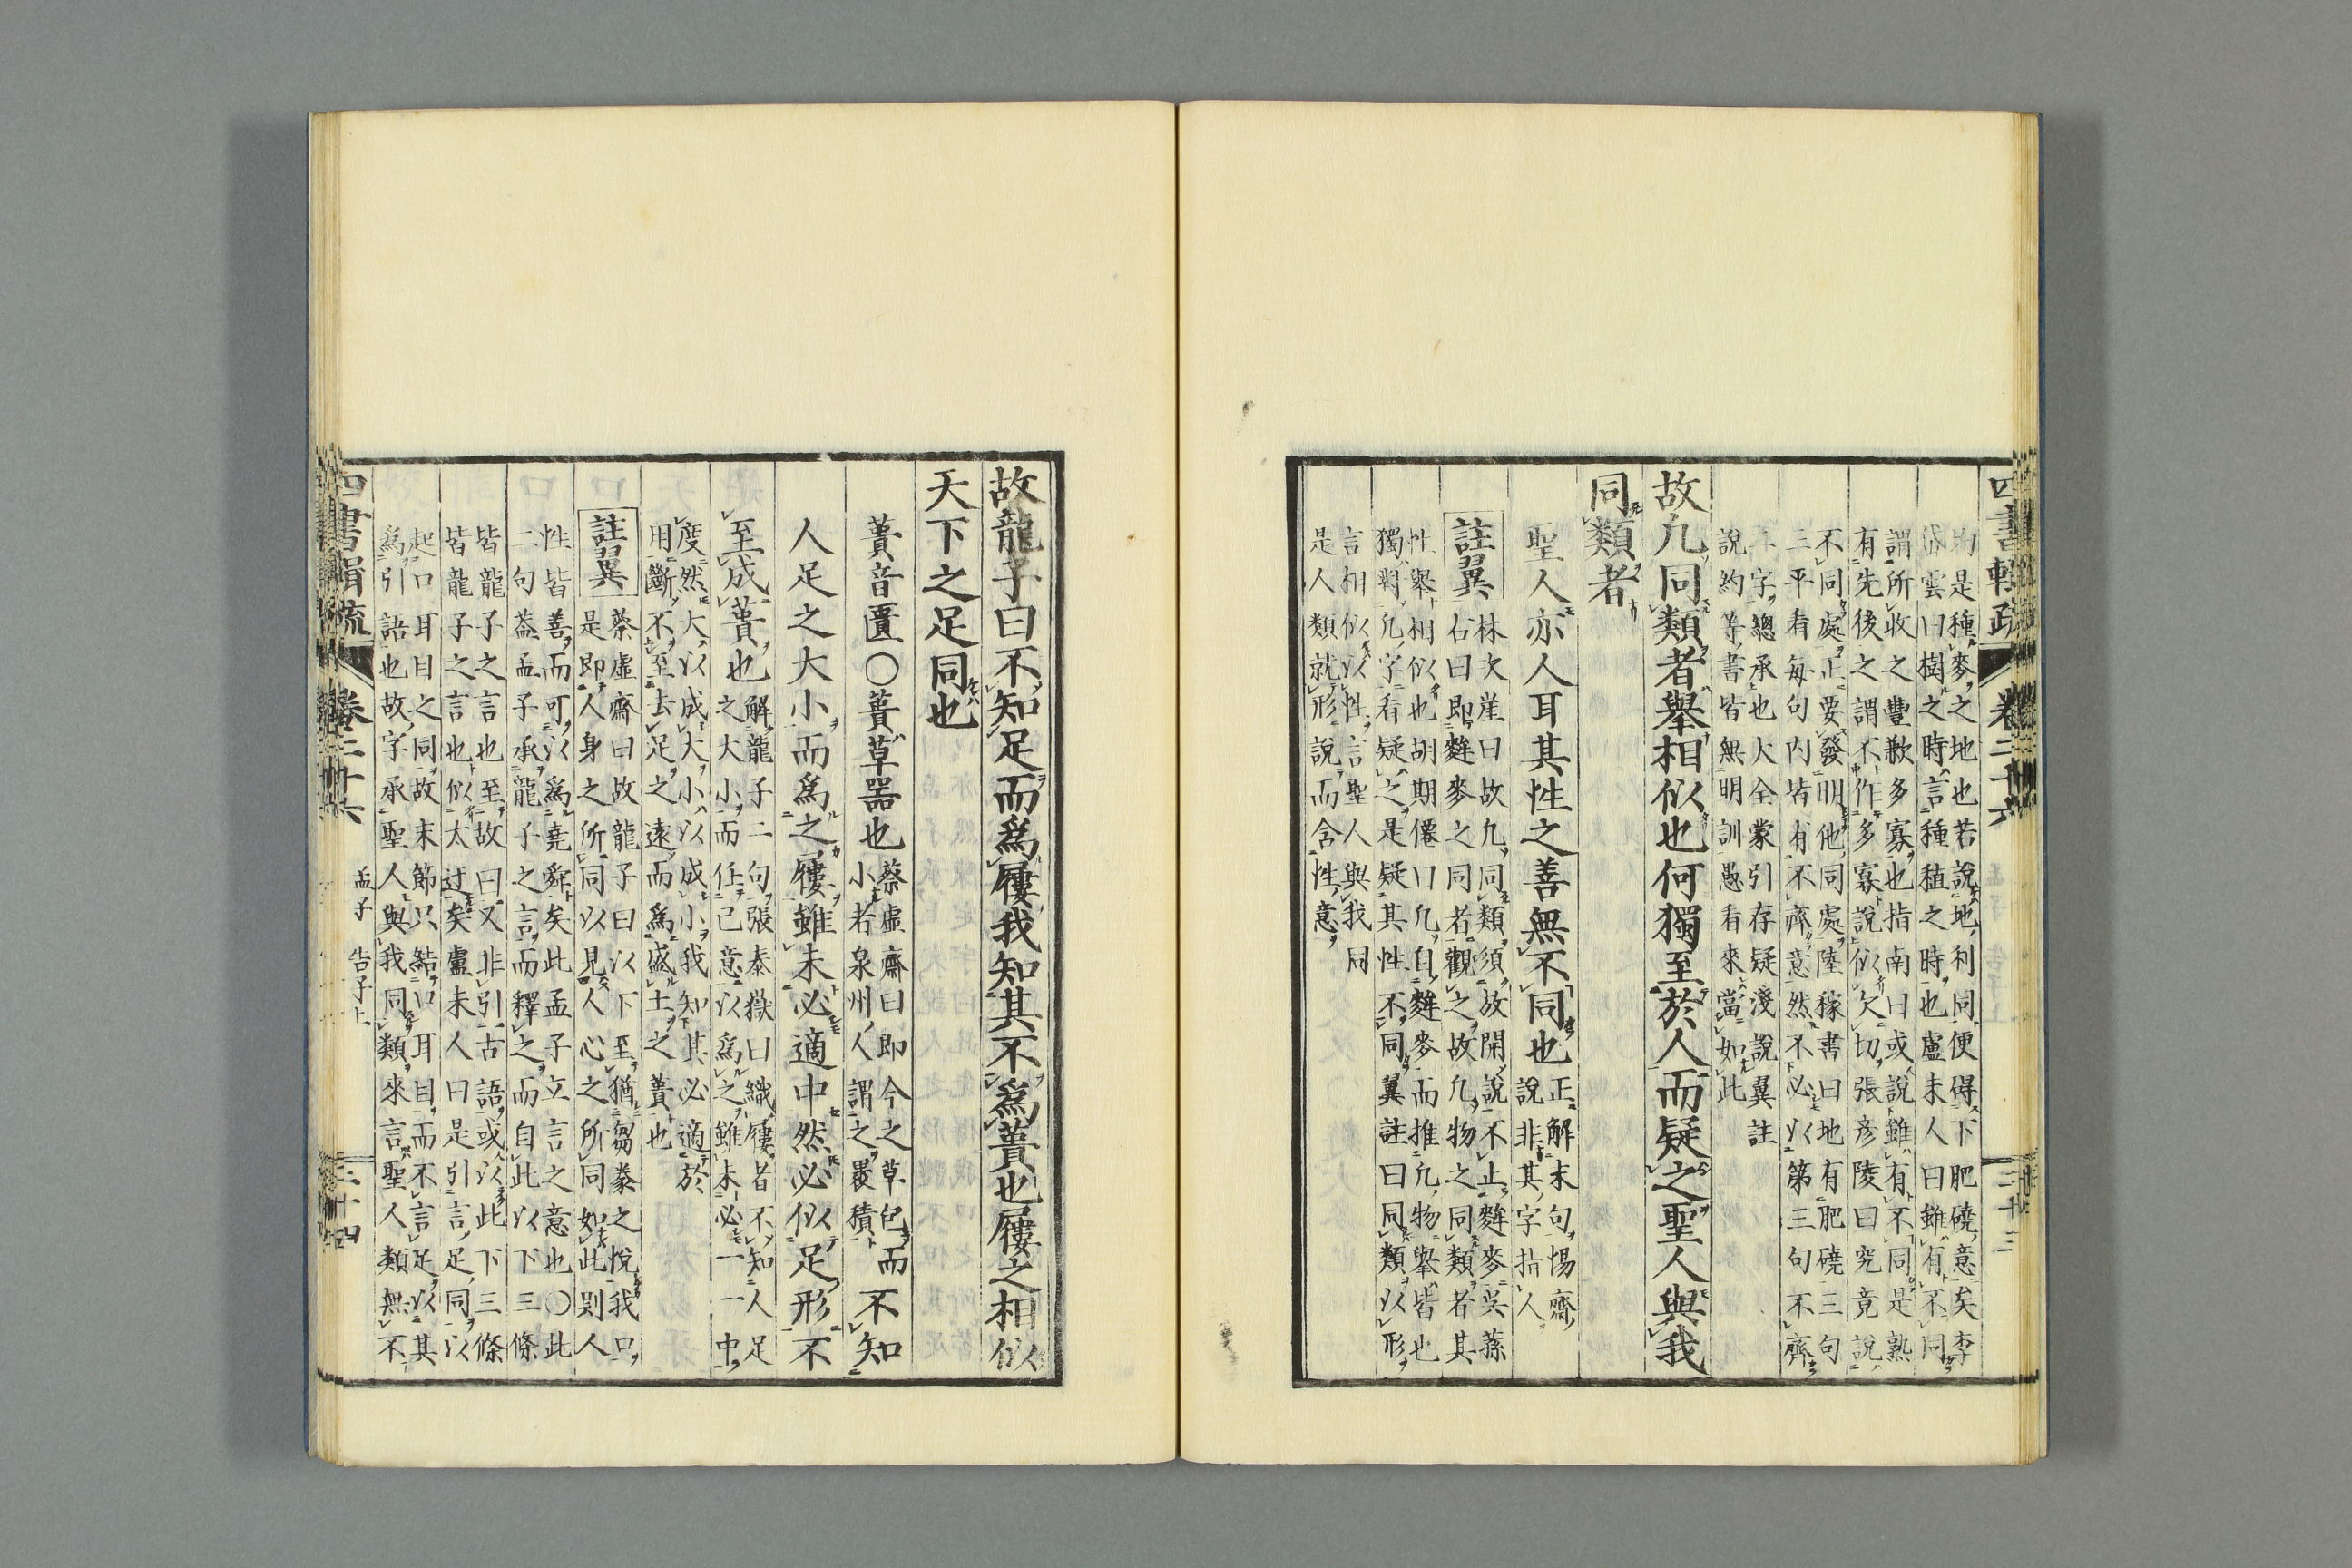 四書輯疏 卷二十六 三十三
為是種麥之地也若說地利同便碍下肥磽意矣李
岱雲曰樹之時言種植之時也盧未人曰雖有不同
謂所收之豐歉多寡也指南曰或說雖有不同是熟
有先後之謂不作多寡說似欠切張彥陵曰究竟說
不同處正要發明他同處陸稼書曰地有肥磽三句
三平看每句內皆有不齊意然不必以第三句不齊
二字總承也大全蒙引存疑淺說翼註
說約等書皆無明訓愚看來當如此
故凢同類者舉相似也何獨至於人而疑之聖人與我
同類者
聖人亦人耳其性之善無不同也
正解末句惕齋
說非其字指人
註翼
林次崖曰故凢同類須放開說不止麰麥吳蓀
右曰即麰麥之同者觀之故凢物之同類者其
性舉相似也胡期僊曰凢自麰麥而推凢物舉皆也
獨對凢字看疑之是疑其性不同翼註曰同類以形
言相似以性言聖人與我同
是人類就形說而含性意
故龍子曰不知足而爲屨我知其不爲蕢也屨之相似
天下之足同也
蕢音匱○蕢草器也
蔡虛齋曰即今之草包而
小若泉州人謂之罨積
不知
人足之大小而爲之屨雖未必適中然必似足形不
至成蕢也
解龍子二句張泰嶽曰織屨者不知人足
之大小而任己意以爲之雖未必一一中
度然大以成大小以成小我知其必適於
用斷不至去足之遠而爲盛土之蕢也
註翼
蔡虛齋曰故龍子曰以下至猶芻豢之悅我口
是即人身之所同以見人心之所同如此則人
性皆善而可以爲堯舜矣此孟子立言之意也○此
二句葢孟子承龍子之言而釋之而自此以下三條
皆龍子之言也至故曰又非引古語或以此下三條
皆龍子之言也似太过矣盧未人曰是引言足同以
起口耳目之同故末節只結口耳目而不言足以其
爲引語也故字承聖人與我同類來言聖人類無不
四書輯疏 卷二十六 孟子 告子上 三十四